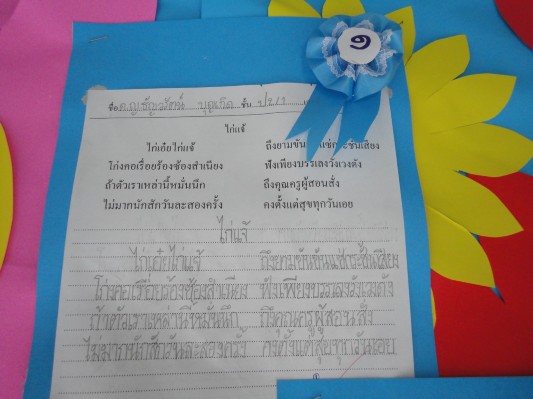 ๑
ชื่อ ด.ญ.ธัญวรัตน์ บุญเกิด ชั้น ป.๖/๑
ไก่แจ้
ไก่เอ๋ยไก่แจ้ ถึงยามขัน
โก่งคอเรื่อยร้องซ้องสำเนียง ฟังเพียงบรรเลงวังเวงดัง
ถ้าตัวเราเหล่านี้หมั่นนึก ถึงคุณครูผู้สอนสั่ง
ไม่มากนักสักวันละสองครั้ง คงตั้งแต่สุขทุกวันเอย
ไก่แจ้
ไก่เอ๋ยไก่แจ้ ถึงยามขันขันแซ่กระชั้นเสียง
โก่งคอเรื่อยร้องซ้องสำเนียง ฟังเพียงบรรเลงวังเวงดัง
ถ้าตัวเราเหล่านี้หมั่นนึก ถึงคุณครูผู้สอนสั่ง
ไม่มากนักสักวันละสองครั้ง คงตั้งแต่สุขทุกวันเอย